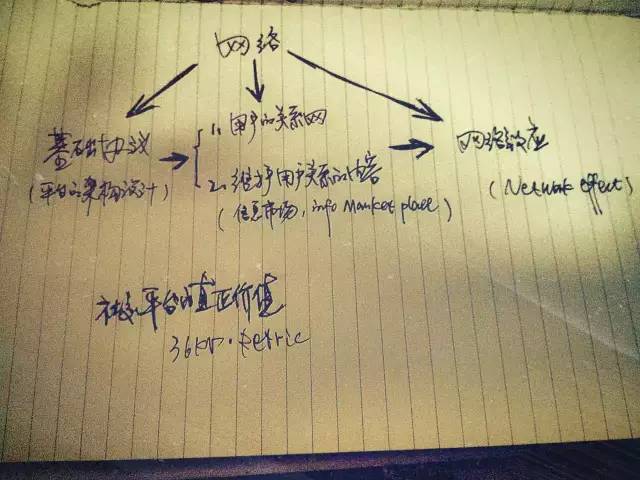 网络
基础协议
(平台的架构设计)
1. 用户的关系网
2. 维护用户关系的内容
(信息市场, info Market place)
网络效应
(Network effect)
社交平台的真正价值
36Kr · Retric